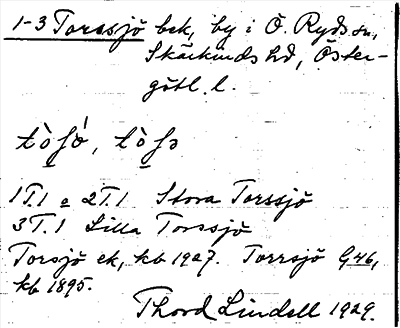 1-3 Torssjö bek, by i Ö. Ryds sn,
Skärkinds hd, Öster-
götl. l.
tòʃó, tòʃə
1T.1 o 2T.1 Stora Torssjö
3T.1 Lilla Torssjö
Torsjö ek, kb 1927. Torrsjö G46,
kb 1895.
Thord Lindell 1929.